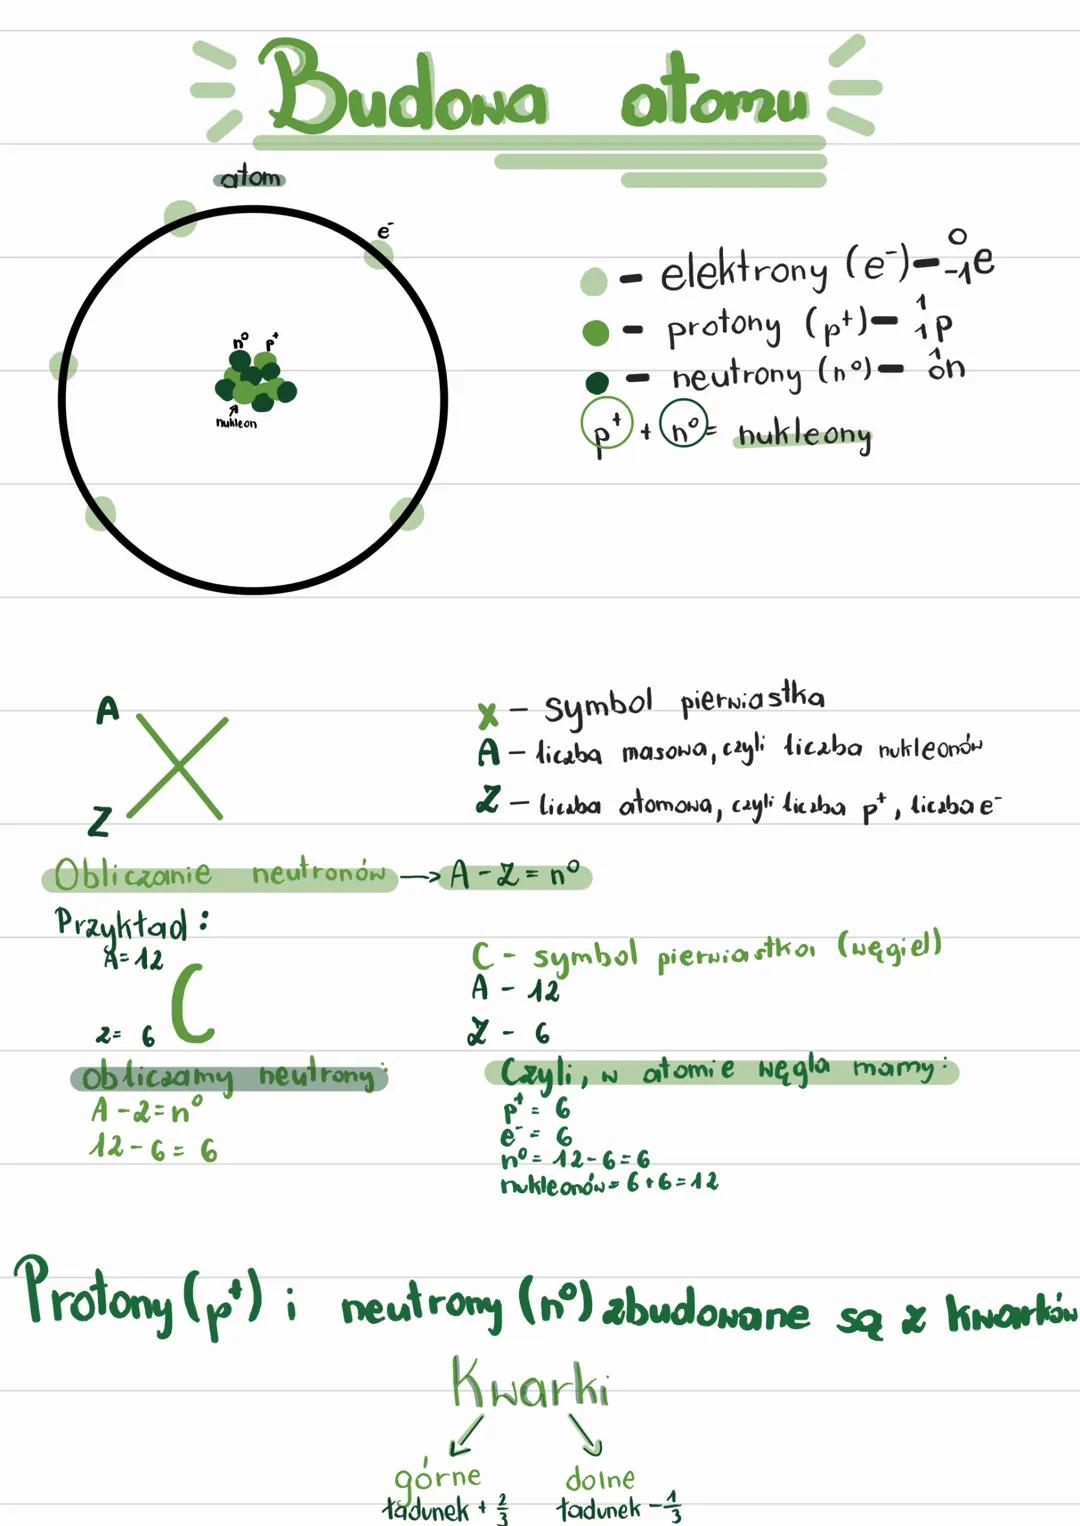 Budowa atomu
atom
e⁻
n⁰ p⁺
nukleon
- elektrony (e⁻) - ⁰₋₁e
- protony (p⁺) - ¹₁p
- neutrony (n⁰) - ¹₀n
p⁺ + n⁰ = nukleony
A
X
Z
X - symbol pierwiastka
A - liczba masowa, czyli liczba nukleonów
Z - liczba atomowa, czyli liczba p⁺, liczba e⁻
Obliczanie neutronów → A - Z = n⁰
Przykład:
A = 12
C
Z = 6
C - symbol pierwiastka (węgiel)
A - 12
Z - 6
obliczamy neutrony:
A - Z = n⁰
12 - 6 = 6
Czyli, w atomie węgla mamy:
p⁺ = 6
e⁻ = 6
n⁰ = 12 - 6 = 6
nukleonów = 6 + 6 = 12
Protony (p⁺) i neutrony (n⁰) zbudowane są z kwarków
Kwarki
górne dolne
ładunek + 2/3 ładunek - 1/3